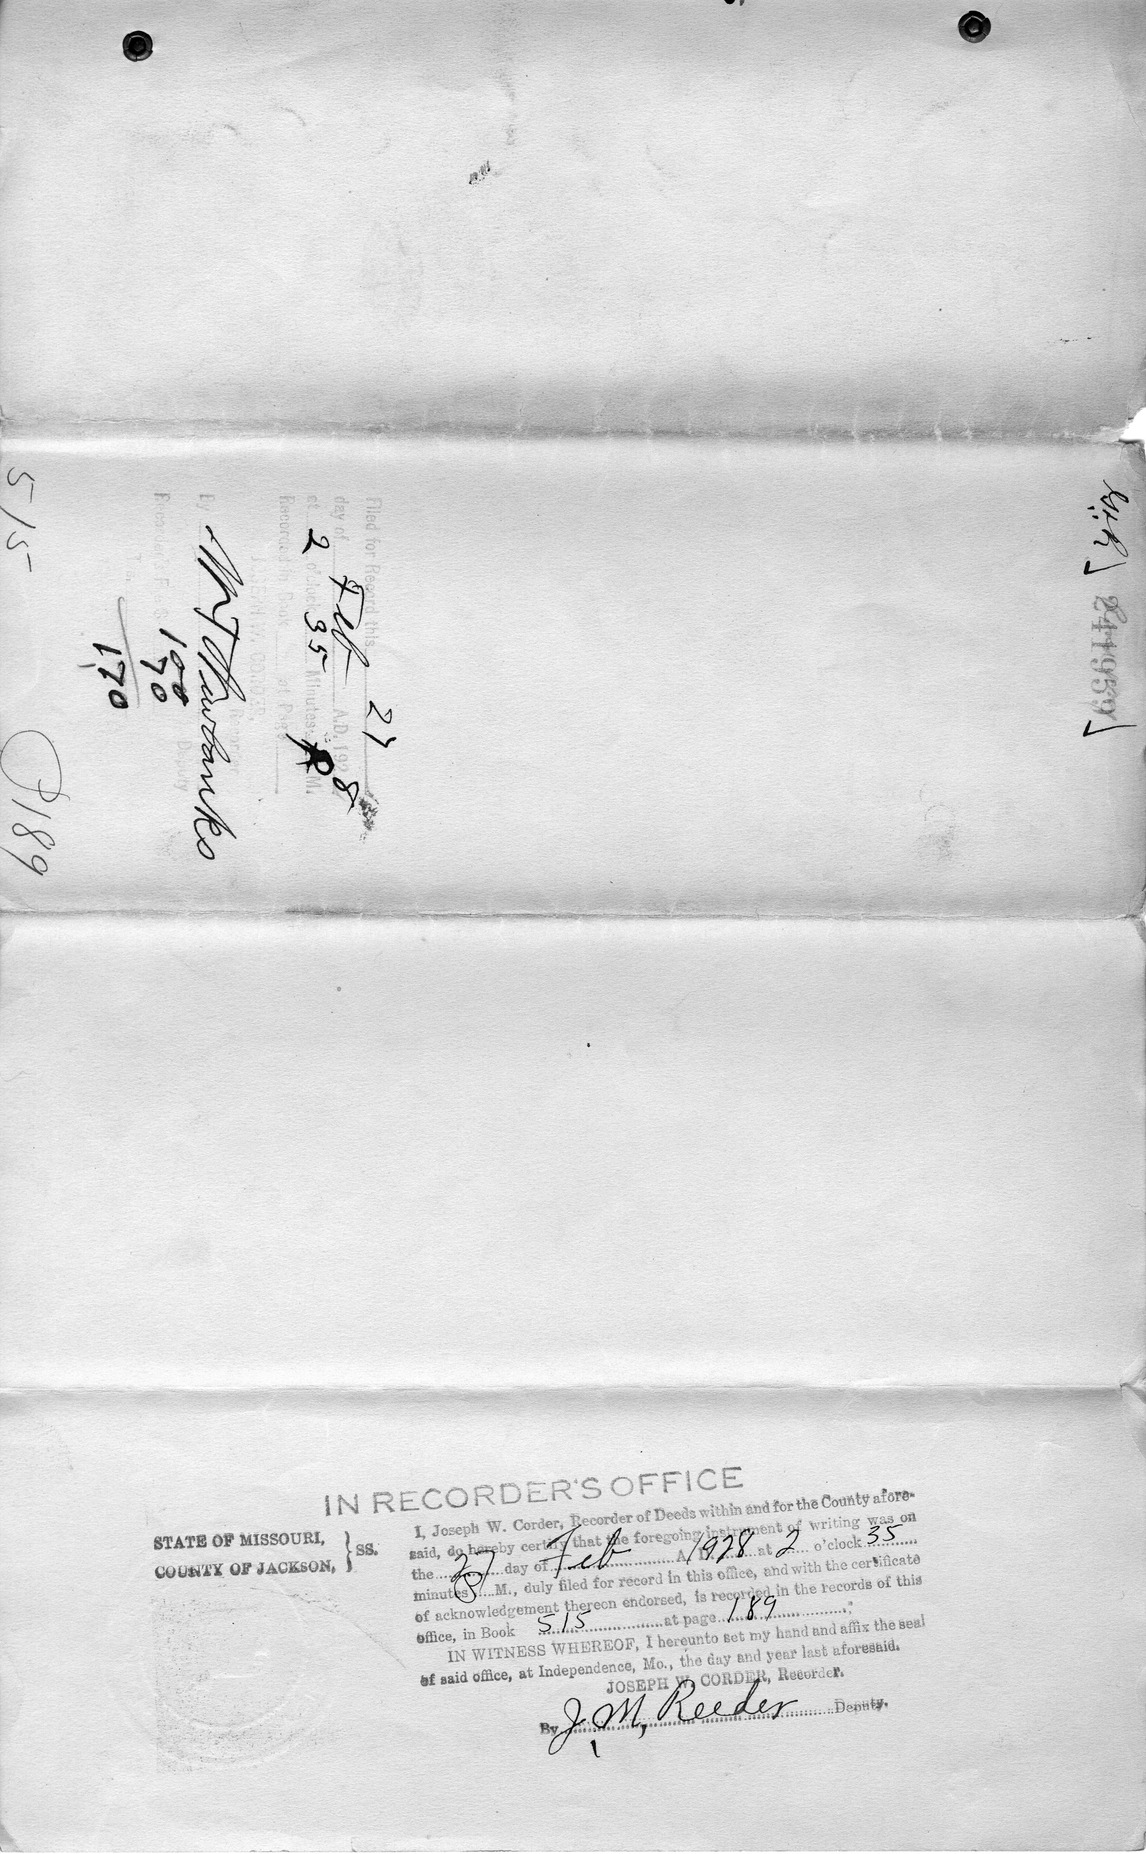 Misc
241959
Filed for Record this 27
day of Feb A.D. 1928
at 2 o'clock 35 Minutes P M.
Recorded in Book at Page
JOSEPH W. CORDER,
Recorder
By Deputy
Recorder's Fee $ 100
70
170
515
P 189
IN RECORDER'S OFFICE
STATE OF MISSOURI,
COUNTY OF JACKSON, } SS.
I, Joseph W. Corder, Recorder of Deeds within and for the County afore-
said, do hereby certify that the foregoing instrument of writing was on
the 27 day of Feb A. D. 1928 at 2 o'clock 35
minutes P M., duly filed for record in this office, and with the certificate
of acknowledgement thereon endorsed, is recorded in the records of this
office, in Book 515 at page 189
IN WITNESS WHEREOF, I hereunto set my hand and affix the seal
of said office, at Independence, Mo., the day and year last aforesaid.
JOSEPH W. CORDER, Recorder.
By J. M. Reeder Deputy.